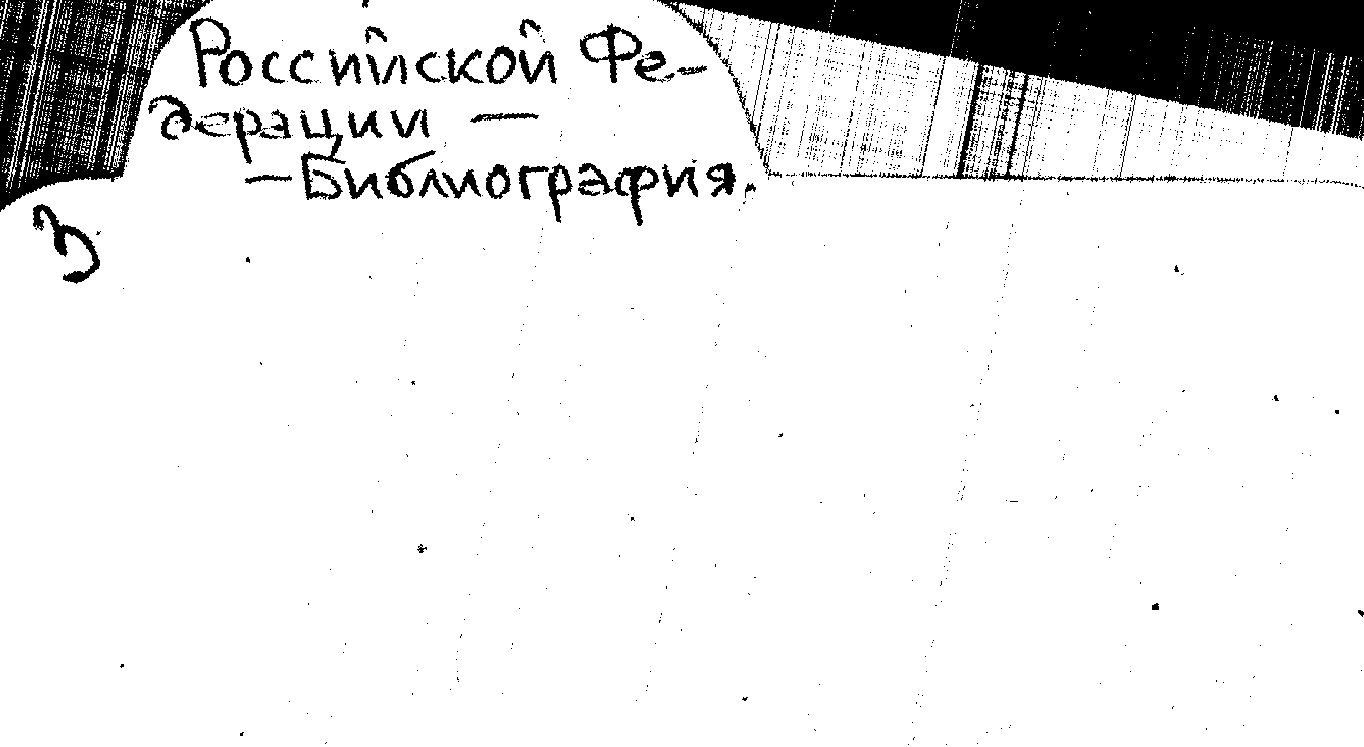 Российской Фе-
дерации —
— Библиография.